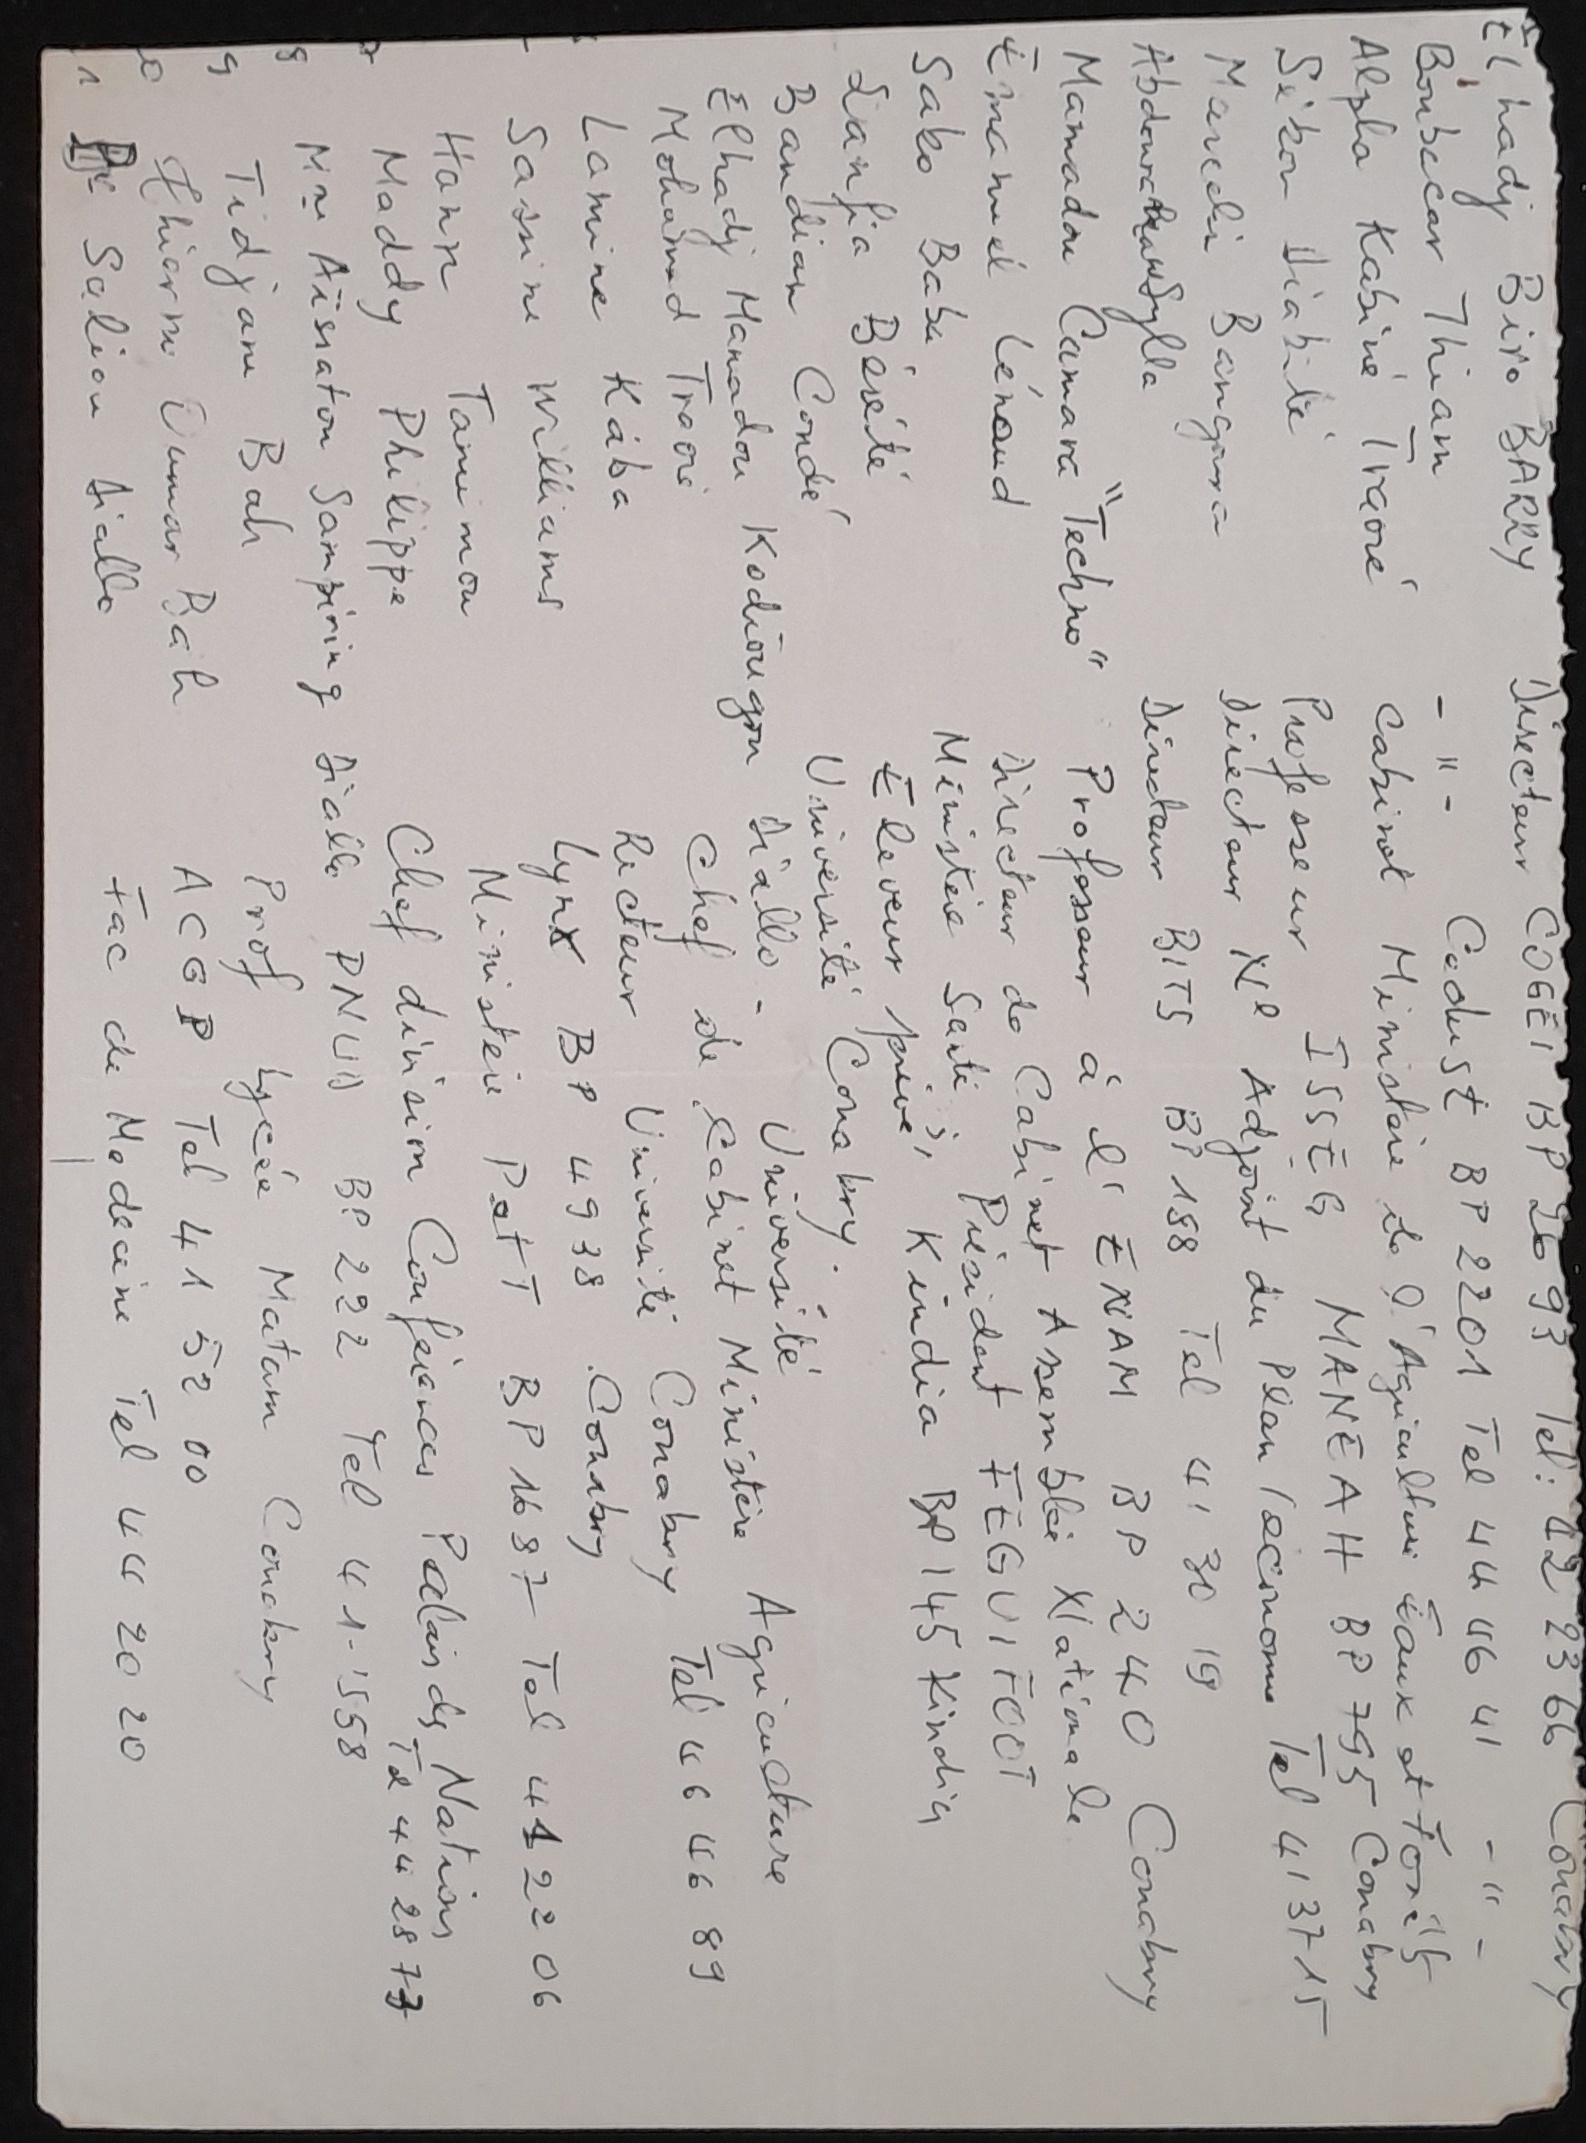 Elhadj Biro BARRY Directeur COGEI BP 2693 Tel: 42 23 66 Conakry
Boubecar Thiam - " - Codust BP 2201 Tel 44 46 41 - " -
Alpha Kabiné Traoré Cabinet Ministère de l'Agriculture Eaux et Forêts
Sékou Diabité Professeur ISSEG MANEAH BP 795 Conakry
Marcelin Bangoura Directeur Nal Adjoint du Plan / économie Tel 41 37 15
Sylla Directeur BITS BP 158 Tel 41 30 19
Mamadou Camara "Techno" Professeur à l'ENAM BP 240 Conakry
Emanuel Lénaud Directeur de Cabinet Assemblée Nationale
Sako Baba Ministère Santé, Président FEGUIFOOT
Lanfia Béreté Eleveur privé, Kindia BP 145 Kindia
Bandian Condé Université Conakry.
Elhadj Mamadou Kodiougou Diallo - Université
Mohamed Traoré Chef de Cabinet Ministère Agriculture
Lamine Kaba Recteur Université Conakry Tel 46 46 89
Sassine Williams Lynx BP 4938 Conakry
Hann Tanimou Ministère PetT BP 1697 Tel 41 22 06
7 Maddy Philippe Chef division Conférences Palais des Nations Tel 44 28 77
8 Mme Aissatou Sampiring Diallo PNUD BP 222 Tel 41-1558
9 Tidjane Bah Prof Lycée Matam Conakry
0 Thierno Oumar Bah ACGP Tel 41 52 00
1 Dr Saliou Diallo Fac de Medecine Tel 44 20 20